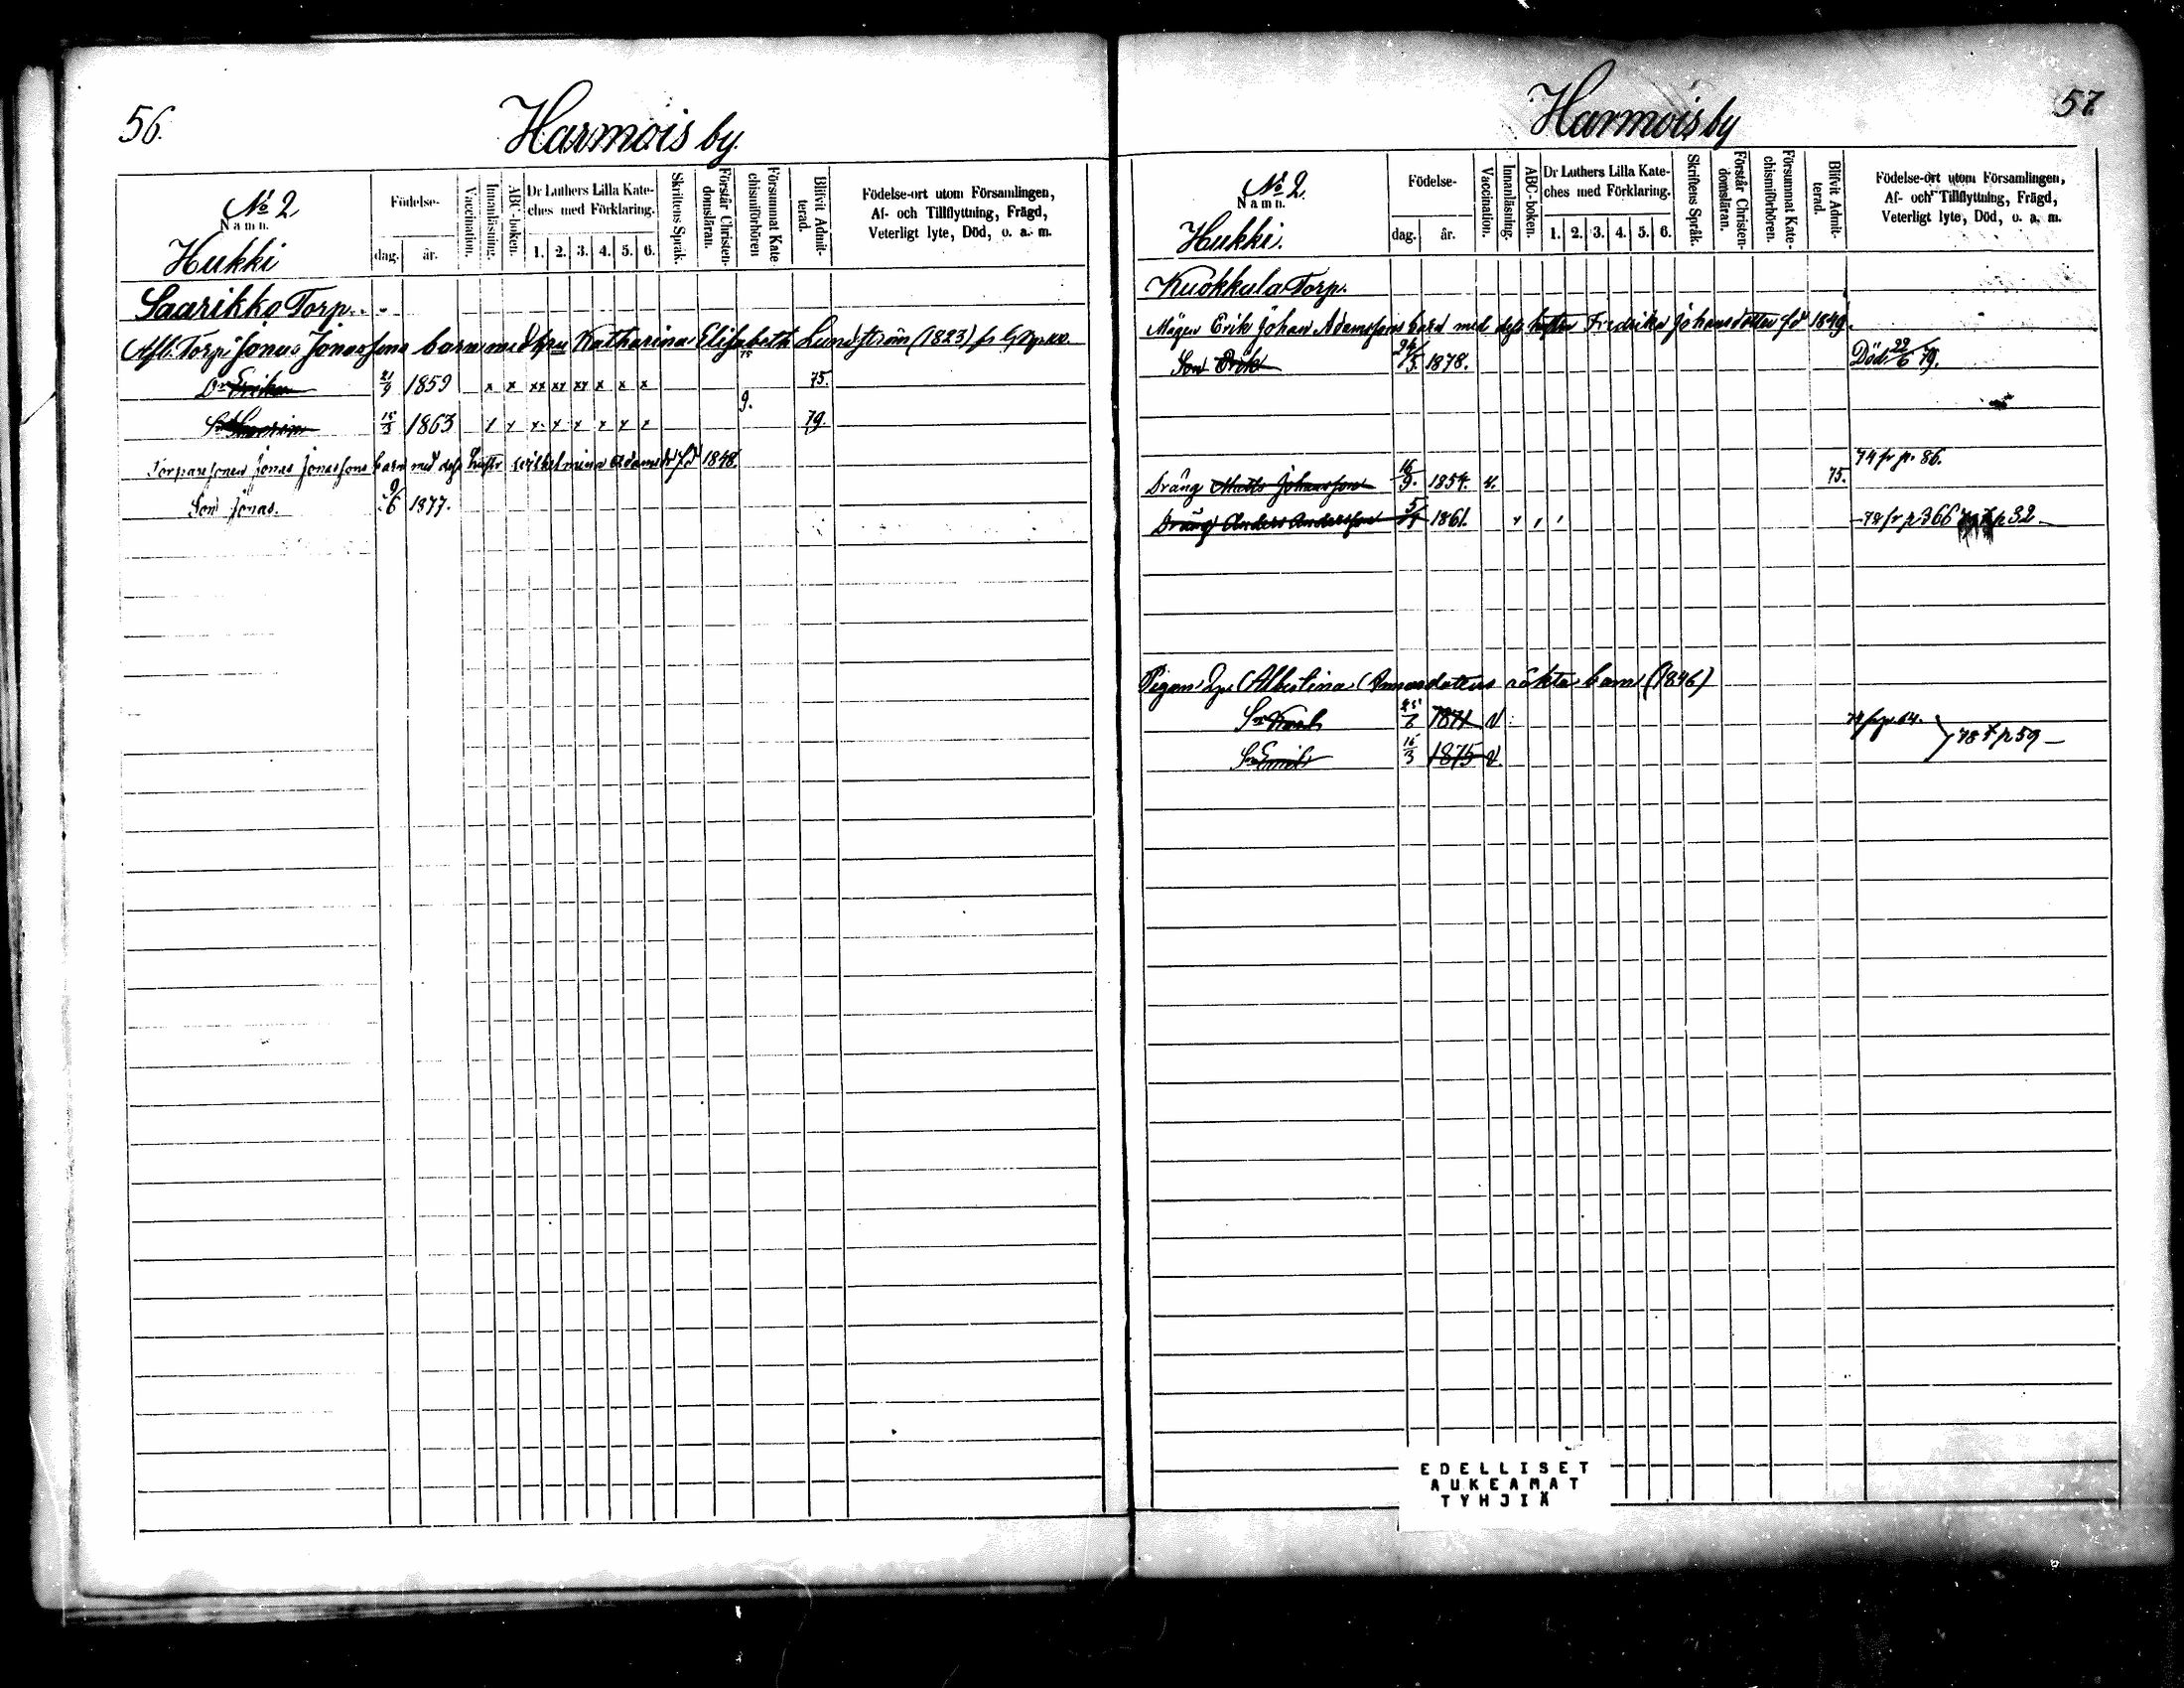 56.
Harmois by.
No 2
Namn.
Hukki
Födelse-
dag.
år.
Vaccination.
Innanläsning.
ABC-boken.
Dr Luthers Lilla Kate-
ches med Förklaring.
1. 2. 3. 4. 5. 6.
Skriftens Språk.
Förstår Christen-
domsläran.
Försummat Kate
chismiförhören
Blifvit Admit-
terad.
Födelse-ort utom Församlingen,
Af- och Tillflyttning, Frägd,
Veterligt lyte, Död, o. a. m.
Saarikko Torp.
Afl. Torp. Jonas Jonassons barn med Katharina Elisabeth Lundström (1823)
Dr Erika 21/3 1859 x x xx xx xx x x x 75 75.
Sn 15/3 1863 x x x x x x x x 9. 79
Torparesonen Jonas Jonassons barn med dess hustr Wilhelmina Adamsdr fd 1848.
Son Jonas. 9/6 1877.
57.
Harmois by
No 2.
Namn.
Hukki.
Födelse-
dag.
år.
Vaccination.
Innanläsning.
ABC-boken.
Dr Luthers Lilla Kate-
ches med Förklaring.
1. 2. 3. 4. 5. 6.
Skriftens Språk.
Förstår Christen-
domsläran.
Försummat Kate-
chismiförhören.
Blifvit Admit-
terad.
Födelse-ort utom Församlingen,
Af- och Tillflyttning, Frägd,
Veterligt lyte, Död, o. a. m.
Kuokkala Torp.
Mågen Erik Johan Adamssons barn med dess hustru Fredrika Johansdotter fd 1849.
Son Erik 24/5. 1878. Död 22/6 79.
Dräng Matts Johansson 16/9. 1854. v. 75. 74 fr p. 86.
Dräng Anders Andersson 5/ 1861. 78 fr p 366 p 32
Pigan Albertina Annasdotters oäkta barn (1846)
Sn Karl 25/ 1871 v. 74 fr p. 64.
Sn Emil 16/3 1875 v. 78 t p 59
EDELLISET
AUKEAMAT
TYHJIÄ